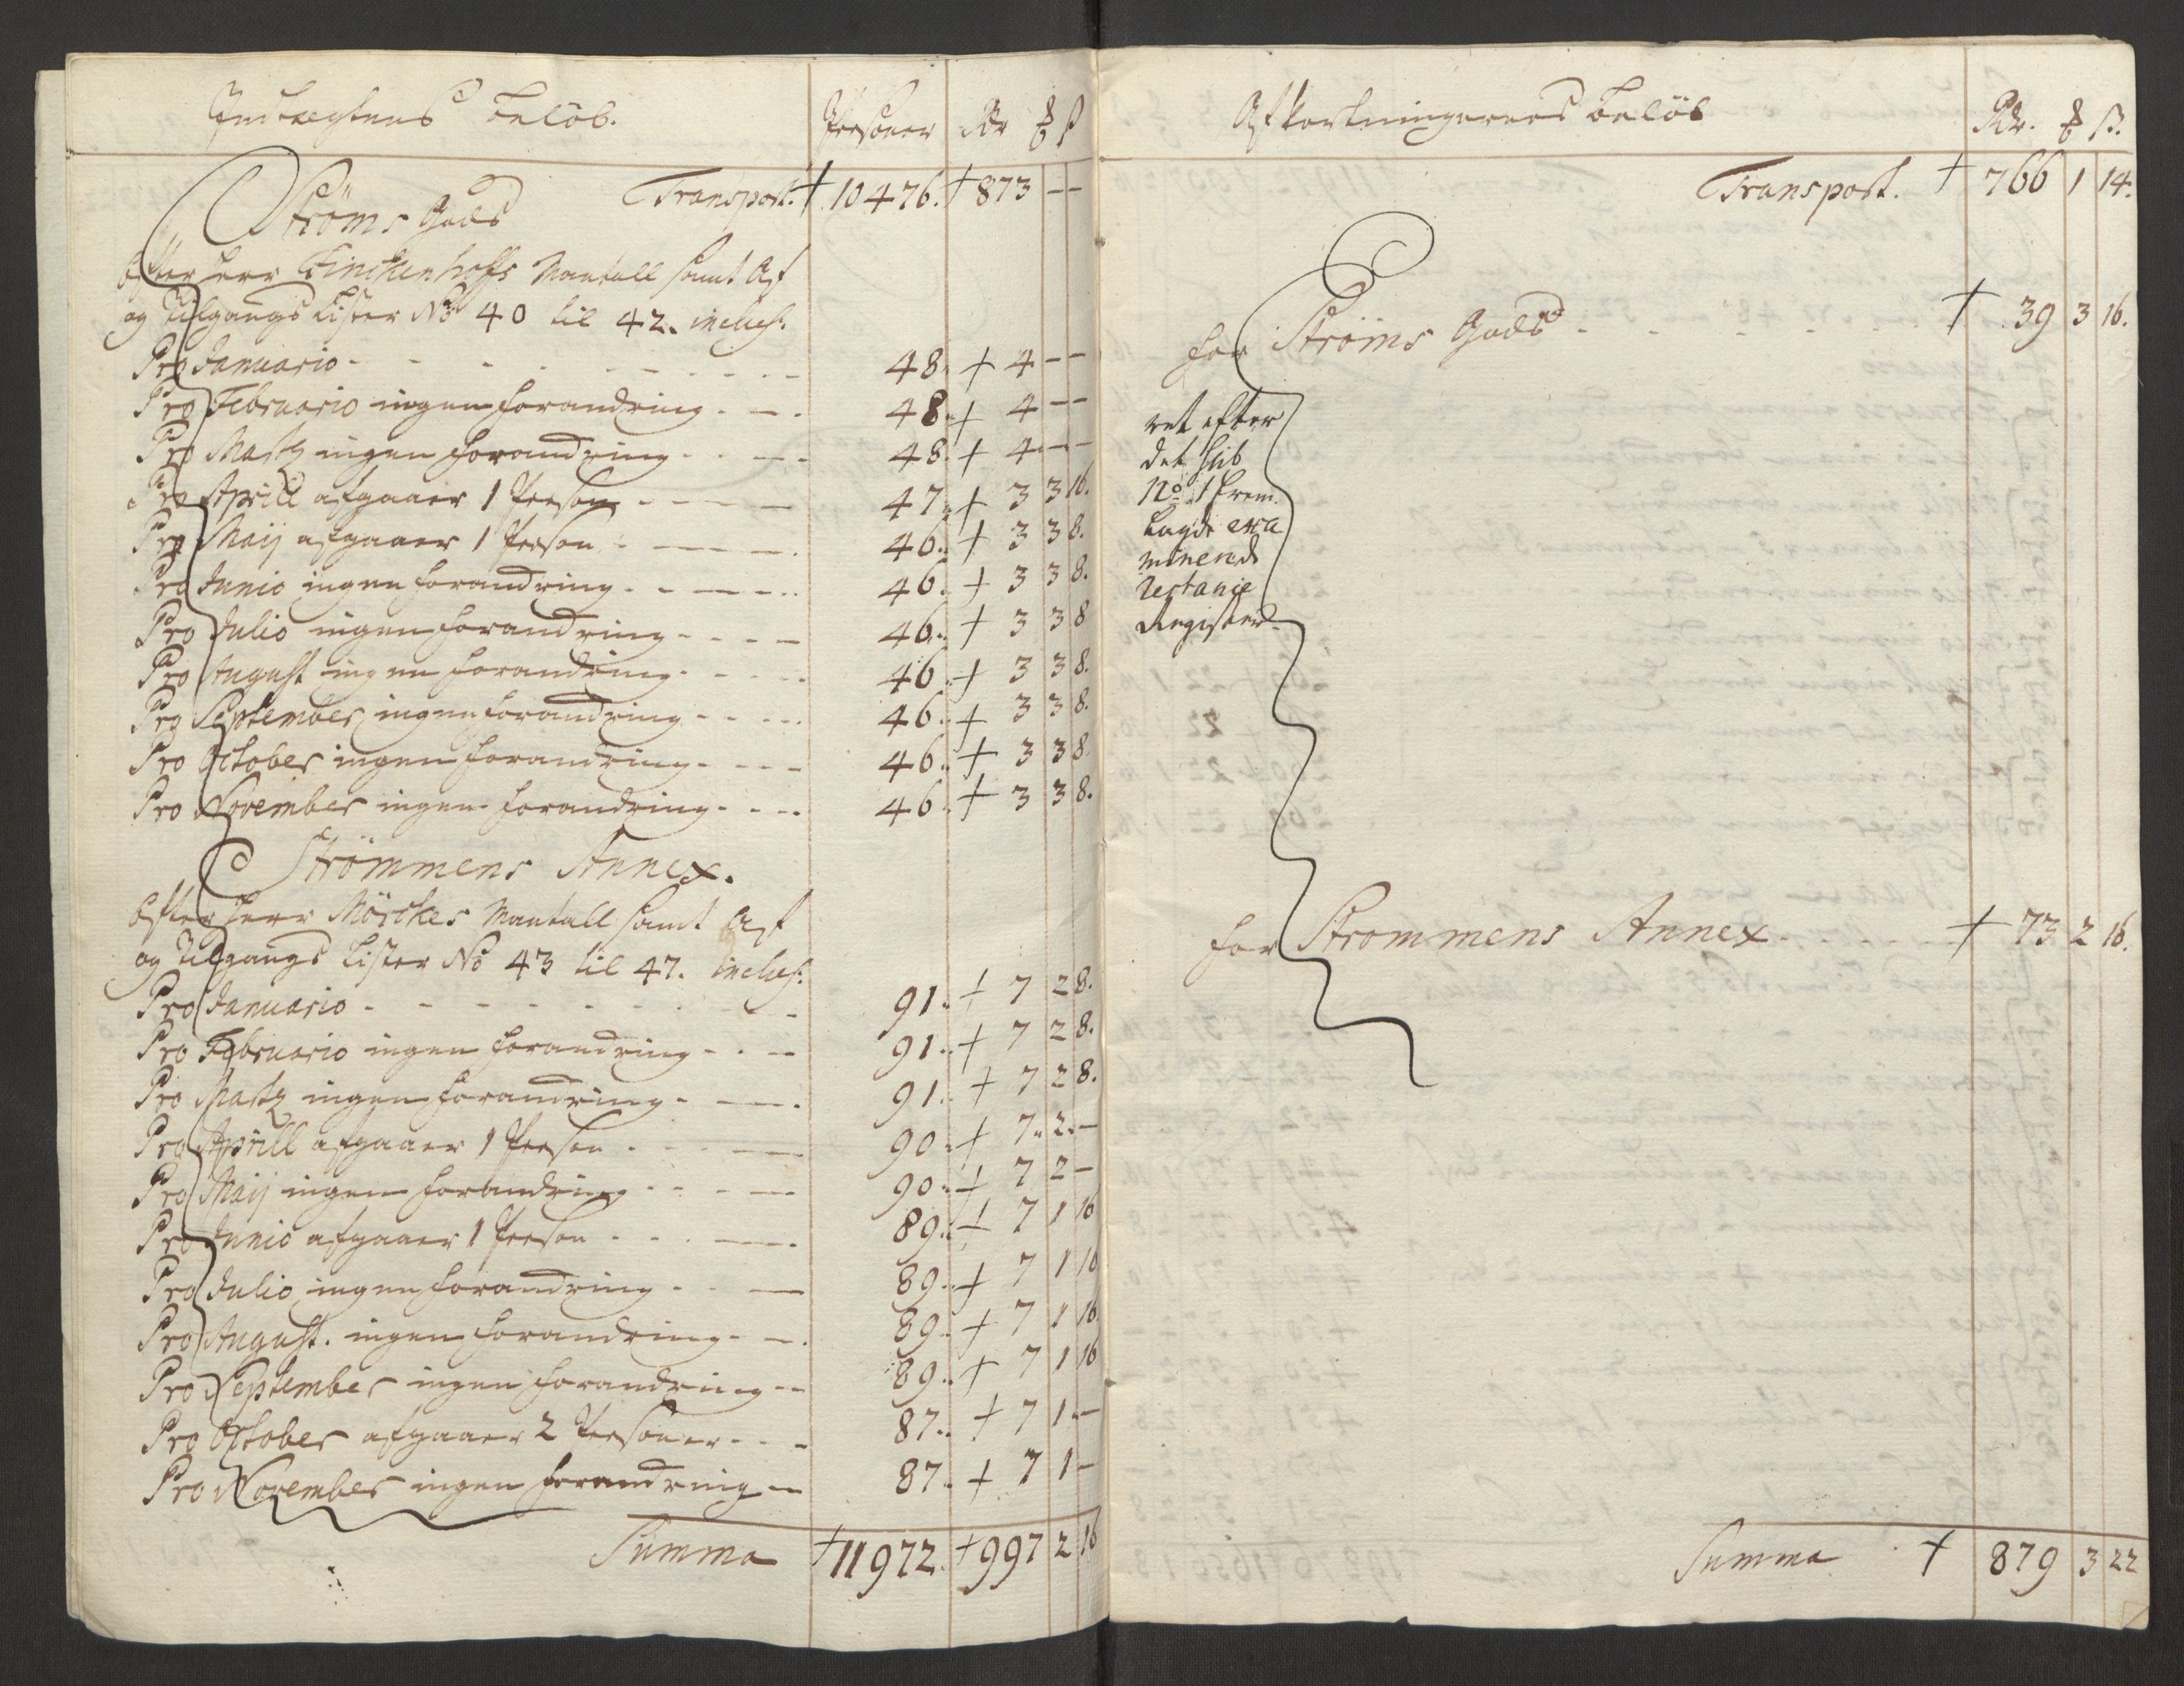 Indtægtens Beløb. Personer Rdr ß
Transport. + 10476. + 873 — —
Ströms Gods
Efter Herr Finckenhoffs Mantall samt Af
og Tilgangs Lister No 40 til 42. inclus:
Pro Januario - - - 48. + 4 — —
Pro Februario ingen forandring - - - 48. + 4 — —
Pro Marty ingen forandring - - - 48. + 4 — —
Pro Aprill afgaaer 1 Person - - - 47. + 3 3 16.
Pro Maij afgaaer 1 Person - - - 46. + 3 3 8.
Pro Junio ingen forandring - - - 46. + 3 3 8.
Pro Julio ingen forandring - - - 46. + 3 3 8
Pro August ingen forandring - - - 46. + 3 3 8.
Pro September ingen forandring - - - 46. + 3 3 8.
Pro October ingen forandring - - - 46. + 3 3 8.
Pro November ingen forandring - - - 46. + 3 3 8.
Strömmens Annex.
Efter Herr Mörckes Mantall samt Af
og Tilgangs Lister No 43 til 47. inclus:
Pro Januario - - - 91. + 7 2 8.
Pro Februario ingen forandring - - - 91. + 7 2 8.
Pro Marty ingen forandring - - - 91. + 7 2 8.
Pro Aprill afgaaer 1 Person - - - 90. + 7. 2. —
Pro Maij ingen forandring - - - 90. + 7 2 —
Pro Junio afgaaer 1 Person - - - 89. + 7 1 16
Pro Julio ingen forandring - - - 89. + 7 1 16
Pro August. ingen forandring - - - 89. + 7 1 16
Pro September ingen forandring - - 89. + 7 1 16
Pro October afgaaer 2 Personer - - - 87. + 7 1. —
Pro November ingen forandring - 87. + 7 1 —
Summa + 11972. + 997 2 16
Afkortningernes Beløb Rdr. ß.
Transport. + 766 1 14.
for Ströms Gods - - - + 39 3 16.
ret efter
det sub
No 1 frem
lagde exa
minerede
Restanie
Register
for Strommens Annex - - - + 73 2 16.
Summa + 879 3 22